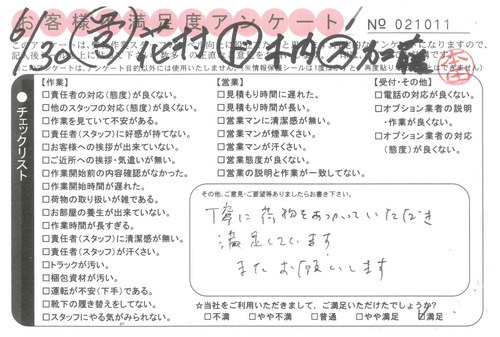 お客様満足度アンケート
No 021011
6/30
【作業】
□責任者の対応(態度)が良くない。
□他のスタッフの対応(態度)が良くない。
□作業を見ていて不安がある。
□責任者(スタッフ)に好感が持てない。
□お客様への挨拶が出来ていない。
□ご近所への挨拶・気遣いが無い。
□作業開始前の内容確認がなかった。
□作業開始時間が遅れた。
□荷物の取り扱いが雑である。
□お部屋の養生が出来ていない。
□作業時間が長すぎる。
□責任者(スタッフ)に清潔感が無い。
□責任者(スタッフ)が汗くさい。
□トラックが汚い。
□梱包資材が汚い。
□運転が不安(下手)である。
□靴下の履き替えをしてない。
□スタッフにやる気がみられない。
チェックリスト
【営業】
□見積もり時間に遅れた。
□見積もり時間が長い。
□営業マンに清潔感が無い。
□営業マンが煙草くさい。
□営業マンが汗くさい。
□営業態度が良くない。
□営業の説明と作業が一致してない。
【受付・その他】
□電話の対応が良くない。
□オプション業者の説明
・作業が良くない。
□オプション業者の対応
(態度)が良くない。
その他、ご意見・ご要望等ありましたらお書き下さい。
丁寧に荷物をあつかっていただき
満足しています
またお願いします
☆当社をご利用いただきまして、ご満足いただけたでしょうか?
□不満 □やや不満 □普通 □やや満足 ☑満足